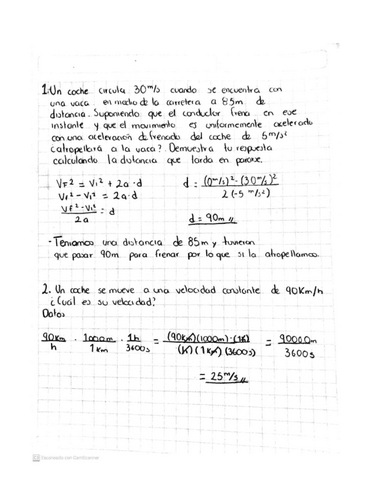 1. Un coche circula 30 m/s cuando se encuentra con
una vaca en medio de la carretera a 85m. de
distancia. Suponiendo que el conductor frena en ese
instante y que el movimiento es uniformemente acelerado
con una aceleración de frenado del coche de 5 m/s²
¿atropellará a la vaca? Demuestra tu respuesta
calculando la distancia que tarda en
VF² = Vi² + 2a · d
d = (0 m/s)² - (30 m/s)² / 2 (-5 m/s²)
Vf² - Vi² = 2a · d
Vf² - Vi² / 2a = d
d = 90m //
- Teniamos una distancia de 85m y tuvieron
que pasar 90m para frenar por lo que si la atropellamos.
2. Un coche se mueve a una velocidad constante de 90Km/h
¿Cuál es su velocidad?
Datos
90Km / h · 1000m / 1Km · 1h / 3600s = (90Km)(1000m)·(1h) / (h)(1Km)(3600s) = 90000m / 3600s
= 25 m/s //
CS Escaneado con CamScanner